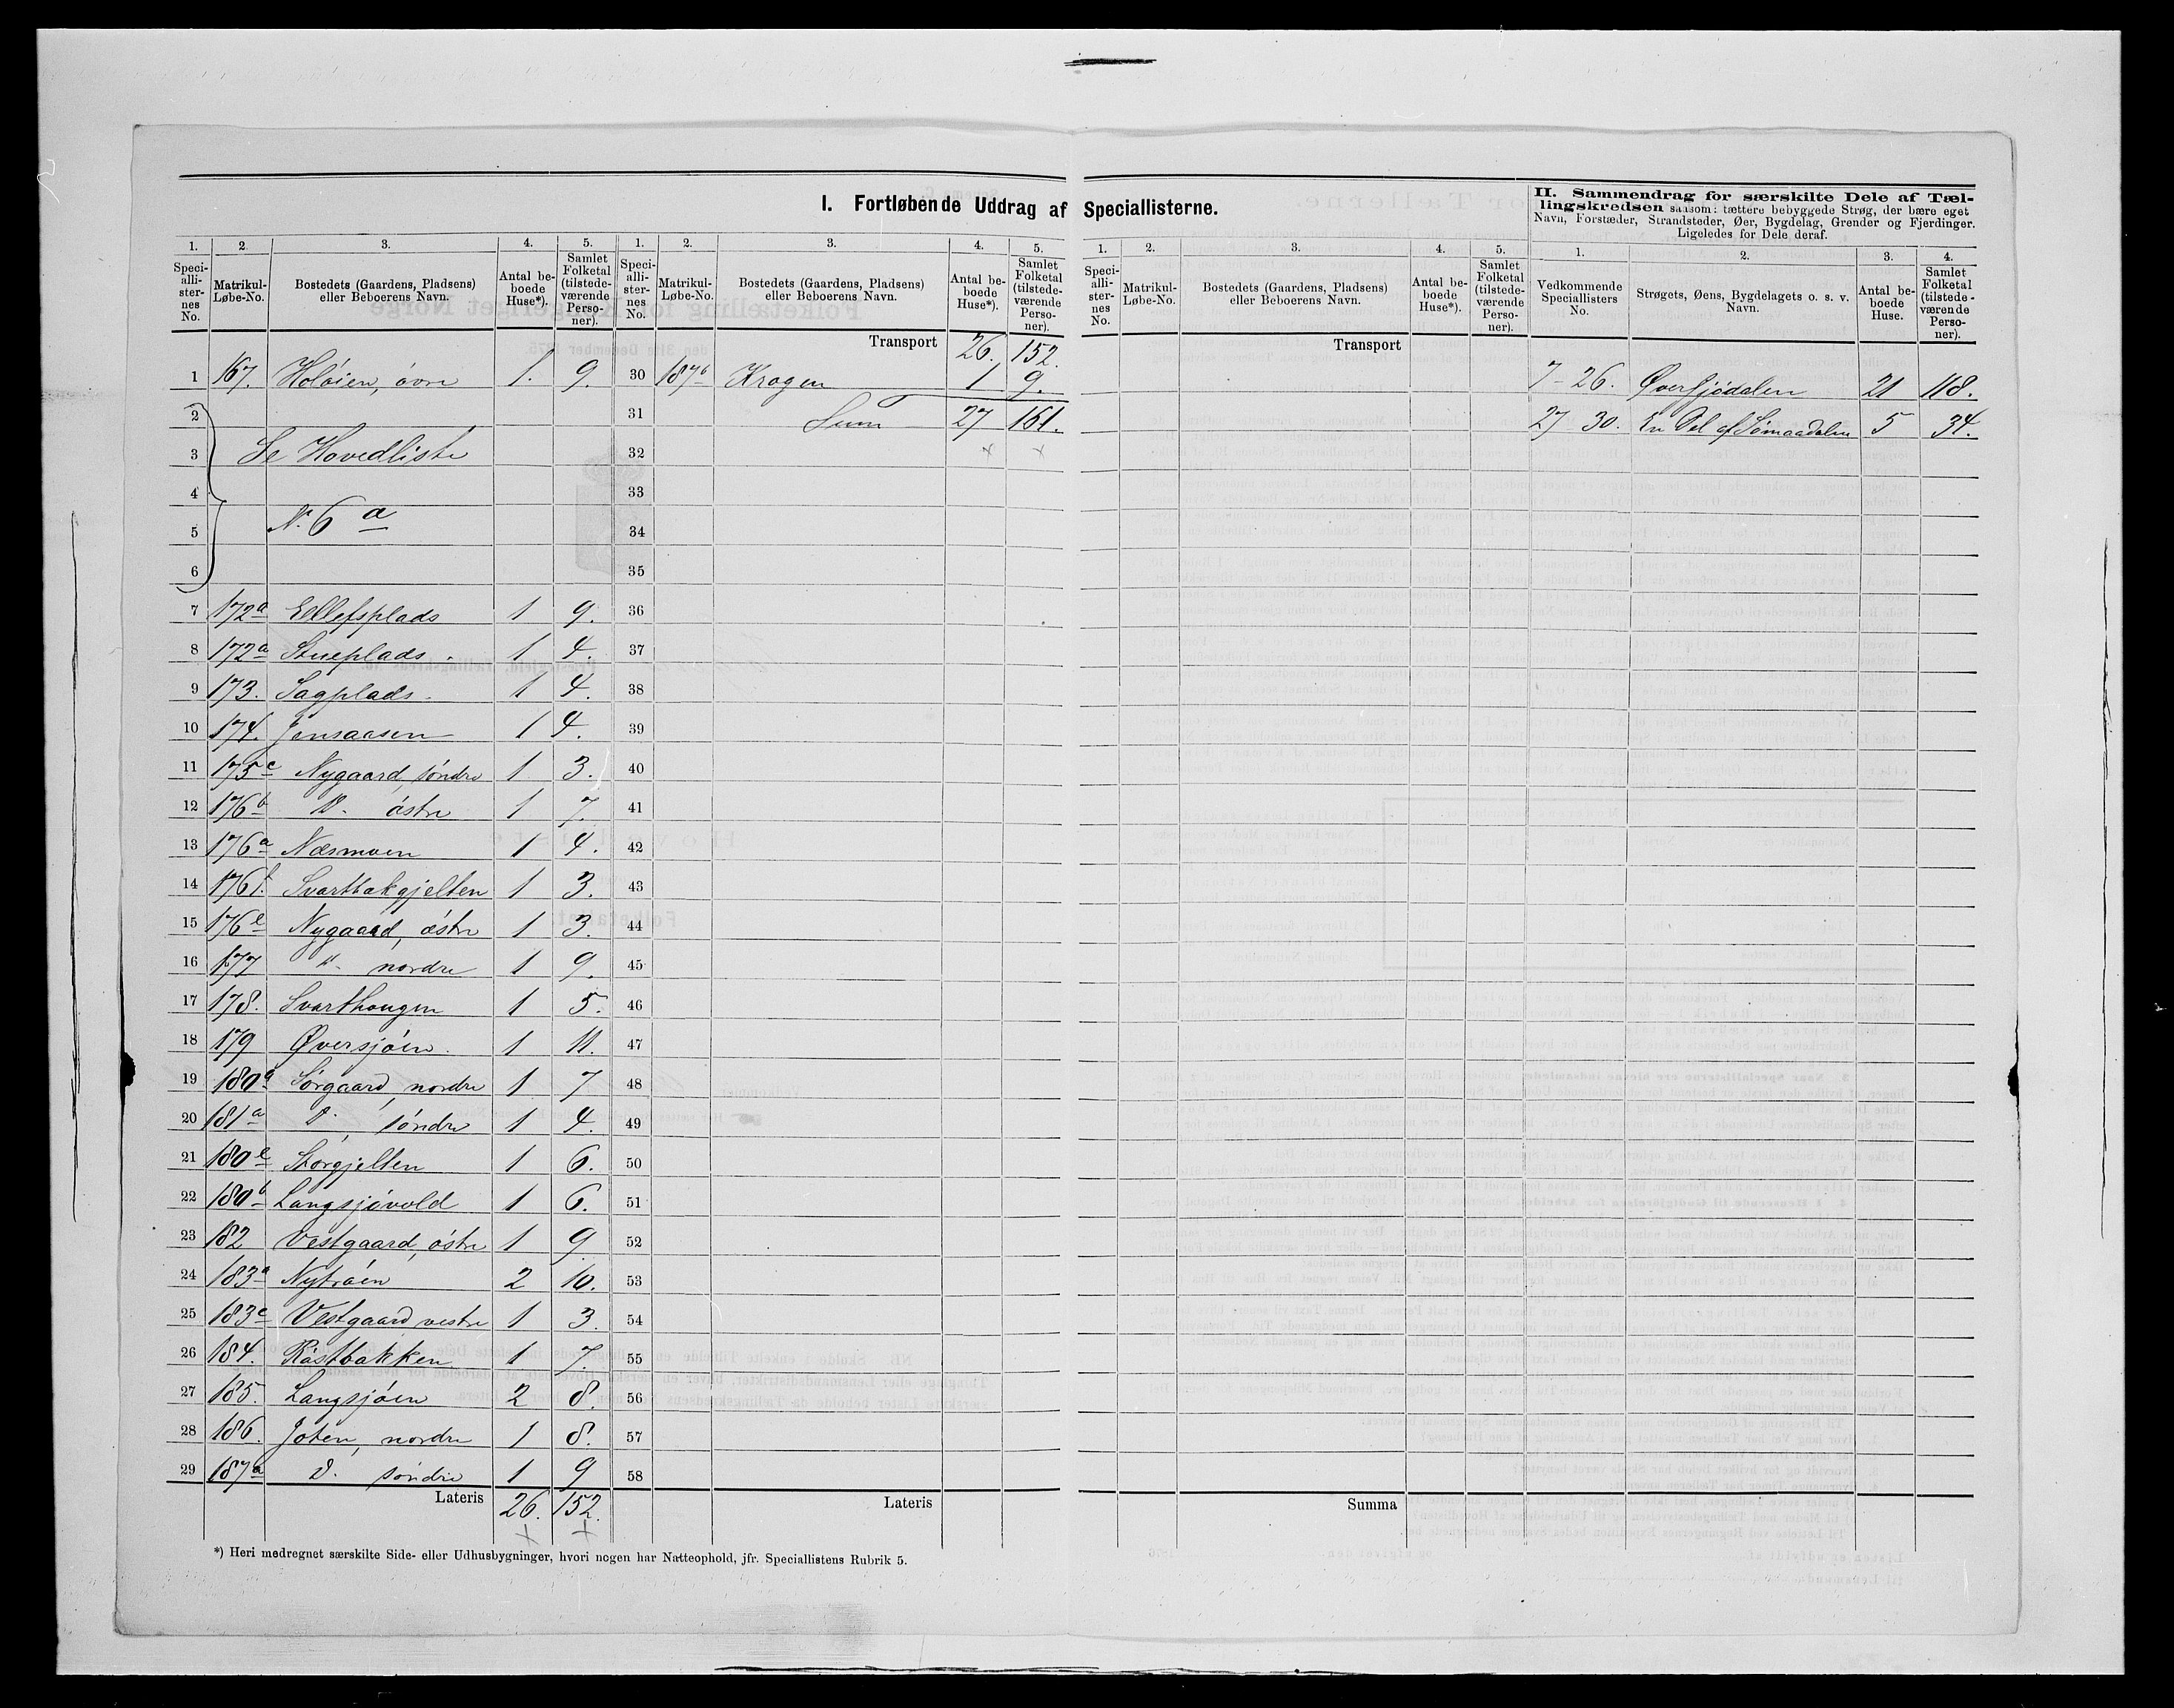 I. Fortløbende Uddrag af Speciallisterne.
II. Sammendrag for særskilte Dele af Tæl-
lingskredsen saasom: tættere bebyggede Strøg, der bære eget
Navn, Forstæder, Strandsteder, Øer, Bygdelag, Grender og Fjerdinger.
Ligeledes for Dele deraf.
1. 2. 3. 4. 5. 1. 2. 3. 4. 5. 1. 2. 3. 4. 5. 1. 2. 3. 4.
Speci-alli-ster-nes No. Matrikul-Løbe-No. Bostedets (Gaardens, Pladsens) eller Beboerens Navn. Antal be-boede Huse*). Samlet Folketal (tilstede-værende Perso-ner).
Speci-alli-ster-nes No. Matrikul-Løbe-No. Bostedets (Gaardens, Pladsens) eller Beboerens Navn. Antal be-boede Huse*). Samlet Folketal (tilstede-værende Perso-ner).
Speci-alli-ster-nes No. Matrikul-Løbe-No. Bostedets (Gaardens, Pladsens) eller Beboerens Navn. Antal be-boede Huse*). Samlet Folketal (tilstede-værende Perso-ner).
Vedkommende Speciallisters No. Strøgets, Øens, Bygdelagets o. s. v. Navn. Antal be-boede Huse. Samlet Folketal (tilstede-værende Perso-ner).
1 167. Holøien, øvre 1. 9.
2
3 Se Hovedliste
4
5 Nr. 6 a
6
7 172a Ellefsplads 1 9.
8 172a Stueplads. 1 4.
9 173. Sagplads. 1 4.
10 174. Jonsaasen 1 4.
11 175c Nygaard, søndre 1 3.
12 176b D. østre 1 7.
13 176a Næsmoen 1 4.
14 176f. Svartbakgjelten 1 3.
15 176e Nygaard, østre 1 3.
16 177 D. nordre 1 9.
17 178. Svarthougen 1 5.
18 179 Øversjøen. 1 11.
19 180a Sørgaard, nordre 1 7
20 181a D. søndre 1 4.
21 180e Storgjelten 1 6.
22 180b Langsjøvold 1 6.
23 182 Vestgaard, østre 1 9
24 183a Nytrøen 2 10.
25 183c Vestgaard vestre 1 3.
26 184. Røstbakken 1 7.
27 185. Langsjøen 2 8.
28 186. Joten, nordre 1 8.
29 187a D. søndre 1 9
Lateris 26. 152.
Transport 26. 152.
30 187b Krogen 1 9.
31 Sum 27 161.
32
33
34
35
36
37
38
39
40
41
42
43
44
45
46
47
48
49
50
51
52
53
54
55
56
57
58
Lateris
Transport
Summa
7-26. Øversjødalen 21 118.
27-30. En Del af Sømaadalen 5 34.
*) Heri medregnet særskilte Side- eller Udhusbygninger, hvori nogen har Natteophold, jfr. Speciallistens Rubrik 5.